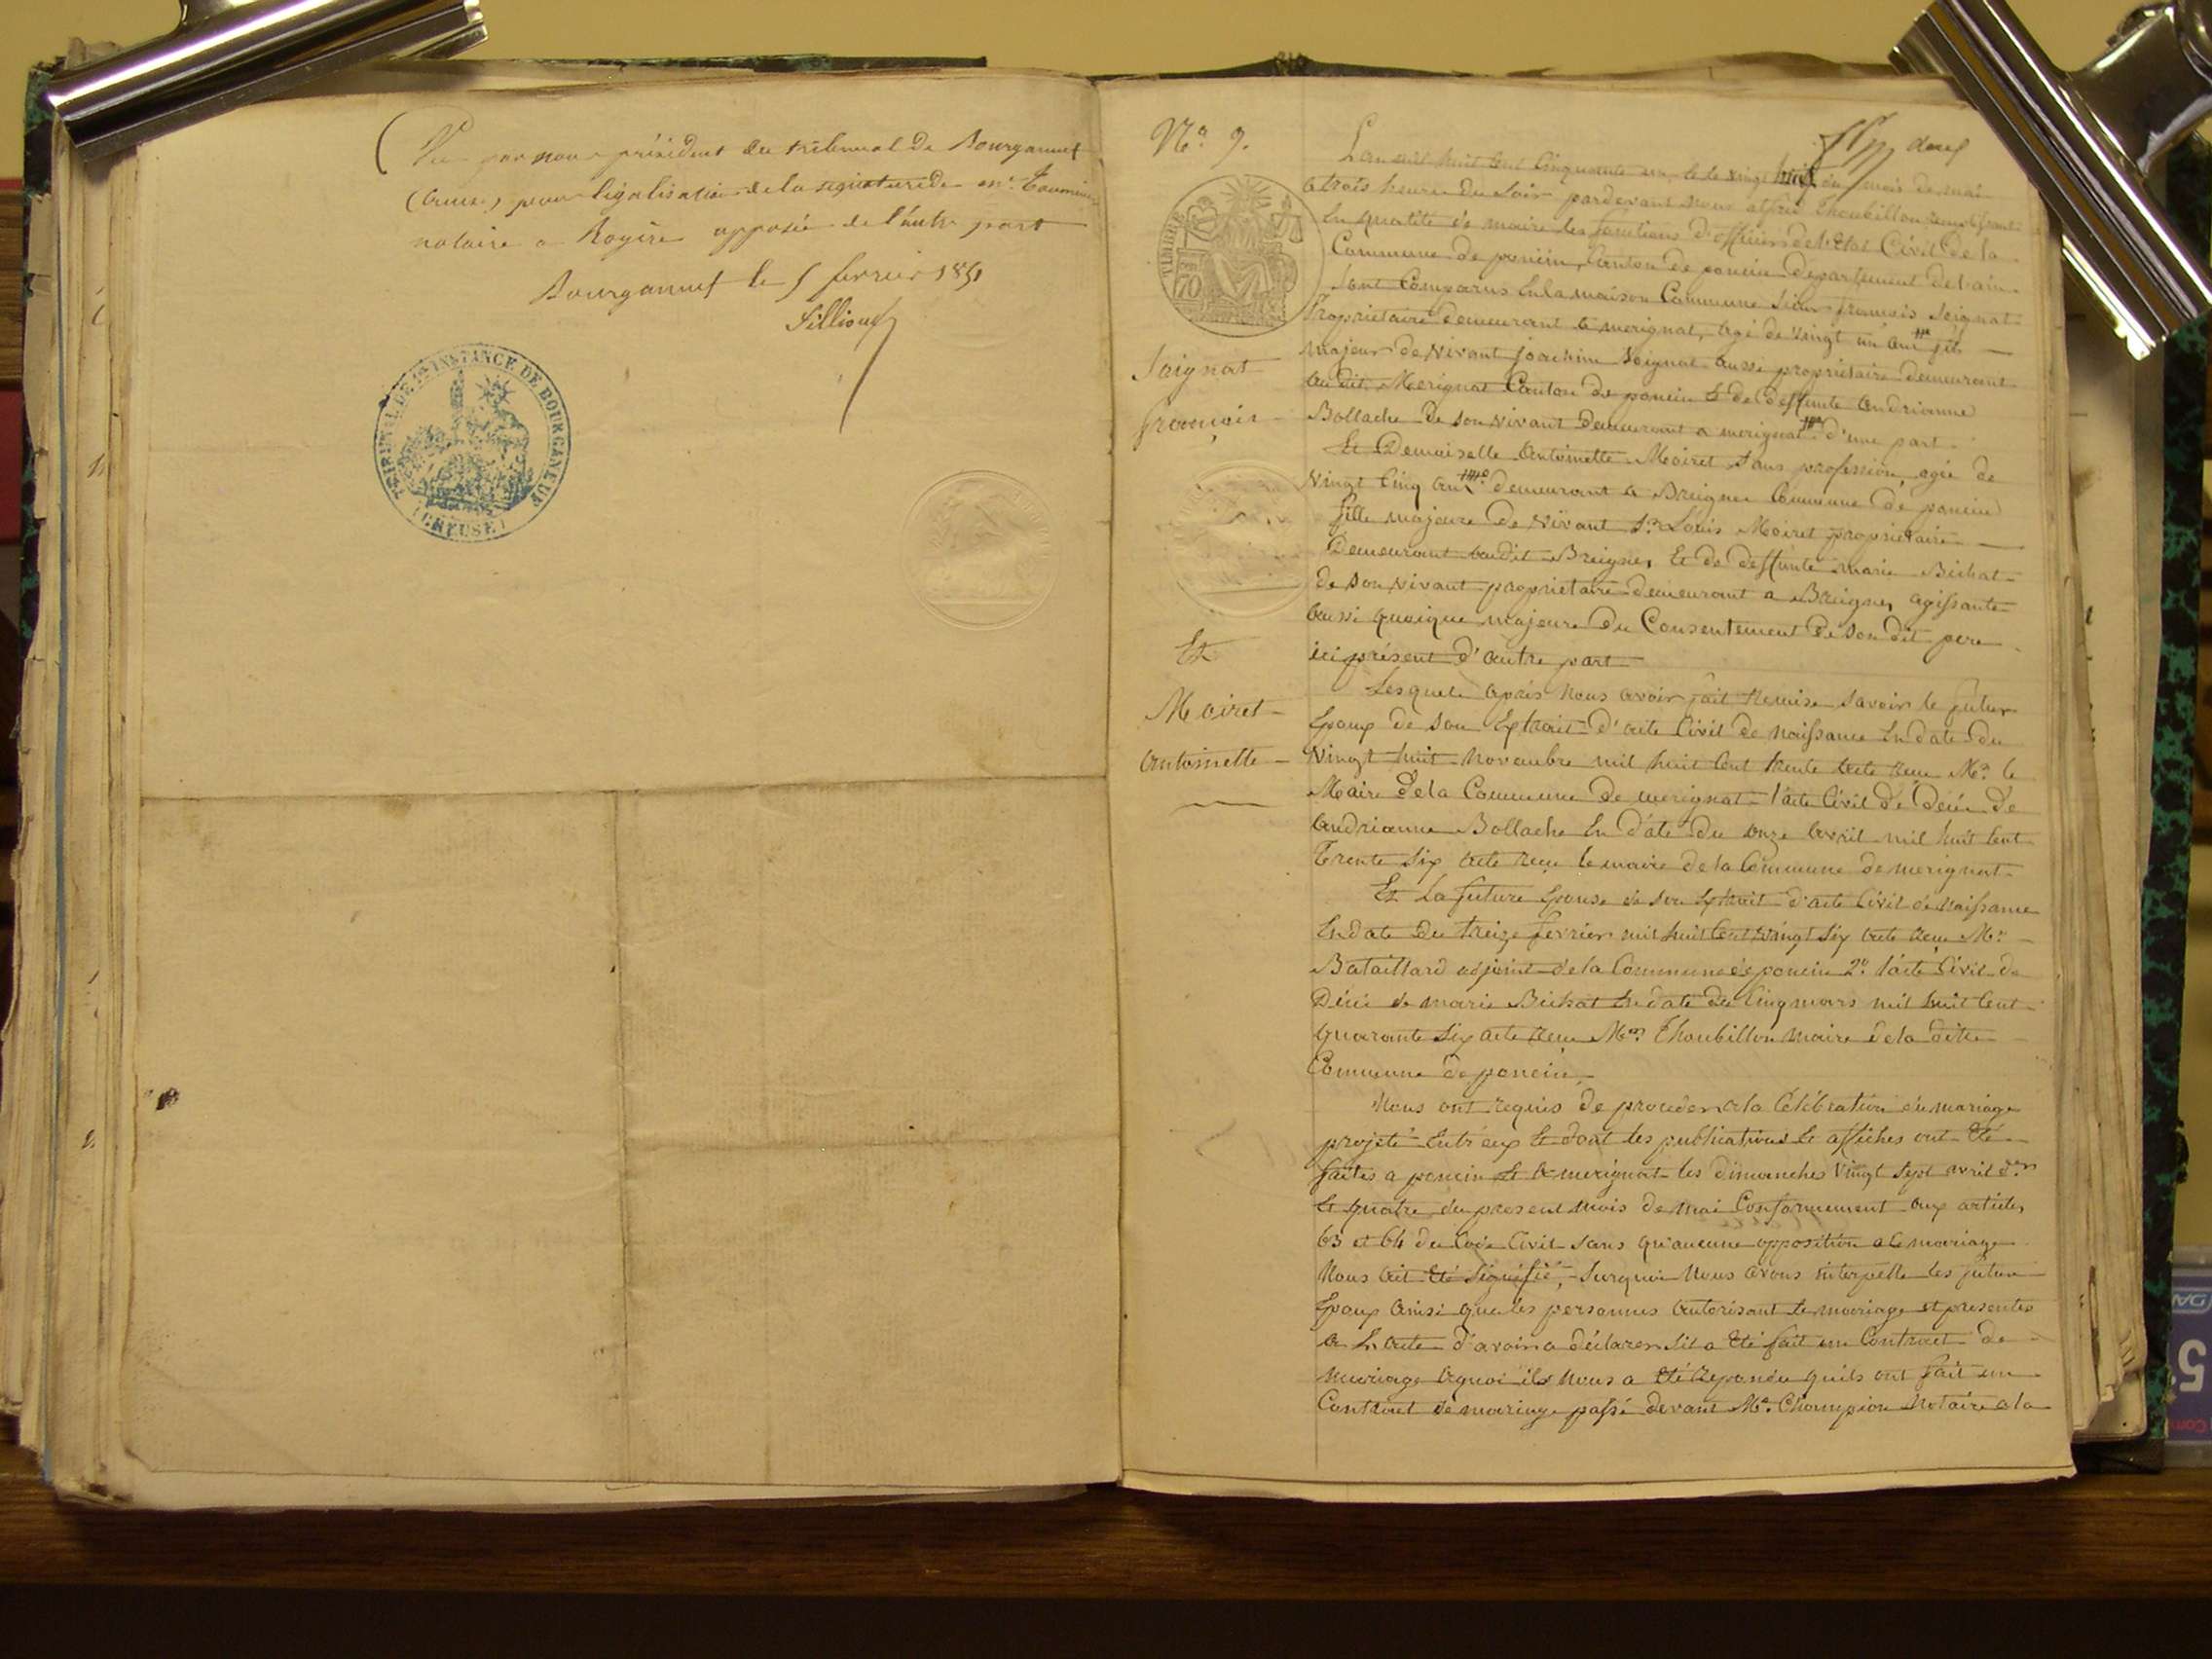 Vu par nous président du tribunal de Bourganeuf
(Creuse) pour légalisation de la signature de Me
notaire a Royère apposée de l'autre part
Bourganeuf le 5 fevrier 1851
TRIBUNAL DE 1re INSTANCE DE BOURGANEUF
(CREUSE)
No. 9.
TIMBRE
70
Saignat
françois
Et
Moiret
antoinette
L'an mil huit cent cinquante un, et le vingt huit du mois de mai
a trois heures du soir pardevant nous alfred Thoubillon remplissant
En qualité de maire les fonctions d'officier de l'Etat Civil de la
Commune de poncin, Canton de poncin departement de l'ain
sont Comparus En la maison Commune Sieur françois Seignat
Proprietaire demeurant a merignat, agé de vingt un ans fils
majeur de vivant joachim Seignat aussi proprietaire demeurant
au dit Merignat Canton de poncin Et de deffunte andrianne
Bollache de son vivant demeurant a merignat d'une part
Et Demoiselle antoinette Moiret sans profession, agée de
vingt Cinq ans demeurant a Breignes Commune de poncin
fille majeure de vivant Sr. Louis Moiret proprietaire
Demeurant audit Breignes, Et de deffunte marie Bichat
de son vivant proprietaire demeurant a Breignes agissante
aussi quoique majeure du Consentement de son dit pere
ici présent d'autre part
Lesquels après nous avoir fait remise savoir le futur
Epoux de son Extrait d'acte Civil de naissance En date du
vingt huit novembre mil huit Cent trente acte reçu Mr. le
Maire de la Commune de merignat l'acte Civil de Décé de
andrianne Bollache En date du onze avril mil huit Cent
Trente Six acte reçu le maire de la Commune de merignat
Et La future Epouse de son Extrait d'acte Civil de naissance
En date du treize fevrier mil huit Cent vingt Six acte reçu Mr.
Bataillard adjoint de la Commune de poncin 2o. l'acte Civil de
Décé de marie Bichat En date du Cinq mars mil huit Cent
quarante Six acte reçu Mr. Thoubillon maire de la ditte
Commune de poncin.
Nous ont requis de proceder a la Célébration du mariage
projeté Entr'eux Et dont les publications Et affiches ont Eté
faites a poncin Et a merignat les dimanches vingt sept avril der
Et quatre du present mois de mai Conformement aux articles
63 et 64 du Code Civil sans qu'aucune opposition a Ce mariage
Nous ait Eté Signifié, Surquoi Nous avons interpellé les futurs
Epoux ainsi que les personnes autorisant le mariage et presentes
a L'acte d'avoir a déclarer s'il a Eté fait un Contract de
mariage aquoi ils nous a Eté Repondu quils ont fait un
Contract de mariage passé devant Me. Champion Notaire a la